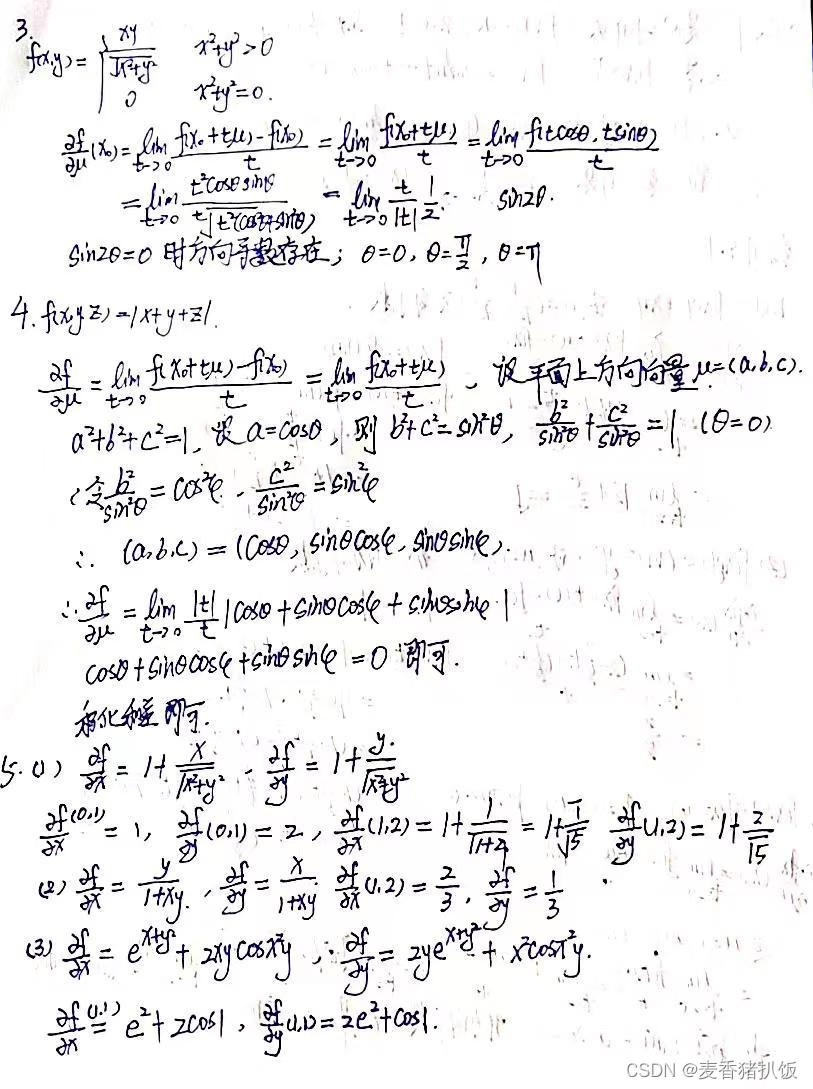 3.
f(x,y) = { xy/√(x²+y²)  x²+y²>0
0  x²+y²=0.
∂f/∂μ (x₀) = lim t→0 (f(x₀+tμ)-f(x₀))/t = lim t→0 f(x₀+tμ)/t = lim t→0 f(tcosθ, tsinθ)/t
= lim t→0 t²cosθsinθ/(t√(t²(cos²θ+sin²θ))) = lim t→0 t/|t| 1/2 · sin2θ.
sin2θ=0 时方向导数存在; θ=0, θ=π/2, θ=π
4. f(x,y,z)=|x+y+z|.
∂f/∂μ = lim t→0 (f(x₀+tμ)-f(x₀))/t = lim t→0 f(x₀+tμ)/t , 设平面上方向向量 μ=(a,b,c).
a²+b²+c²=1, 设 a=cosθ, 则 b²+c²=sin²θ, b²/sin²θ + c²/sin²θ = 1 (θ=0)
令 b²/sin²θ = cos²φ , c²/sin²θ = sin²φ
∴ (a,b,c) = (cosθ, sinθcosφ, sinθsinφ).
∴ ∂f/∂μ = lim t→0 |t|/t |cosθ+sinθcosφ+sinθsinφ|
cosθ+sinθcosφ+sinθsinφ=0 即可.
即可.
5. (1) ∂f/∂x = 1+ x/√(x²+y²) , ∂f/∂y = 1+ y/√(x²+y²)
∂f/∂x (0,1) = 1, ∂f/∂y (0,1) = 2, ∂f/∂x (1,2) = 1+ 1/√(1+4) = 1+ 1/√5  ∂f/∂y (1,2) = 1+ 2/√5
(2) ∂f/∂x = y/(1+xy) , ∂f/∂y = x/(1+xy)  ∂f/∂x (1,2) = 2/3, ∂f/∂y = 1/3
(3) ∂f/∂x = e^(x+y²) + 2xycosx²y , ∂f/∂y = 2ye^(x+y²) + x²cosx²y.
∂f/∂x (1,1) = e²+2cos1, ∂f/∂y (1,1) = 2e²+cos1.
CSDN @麦香猪扒饭